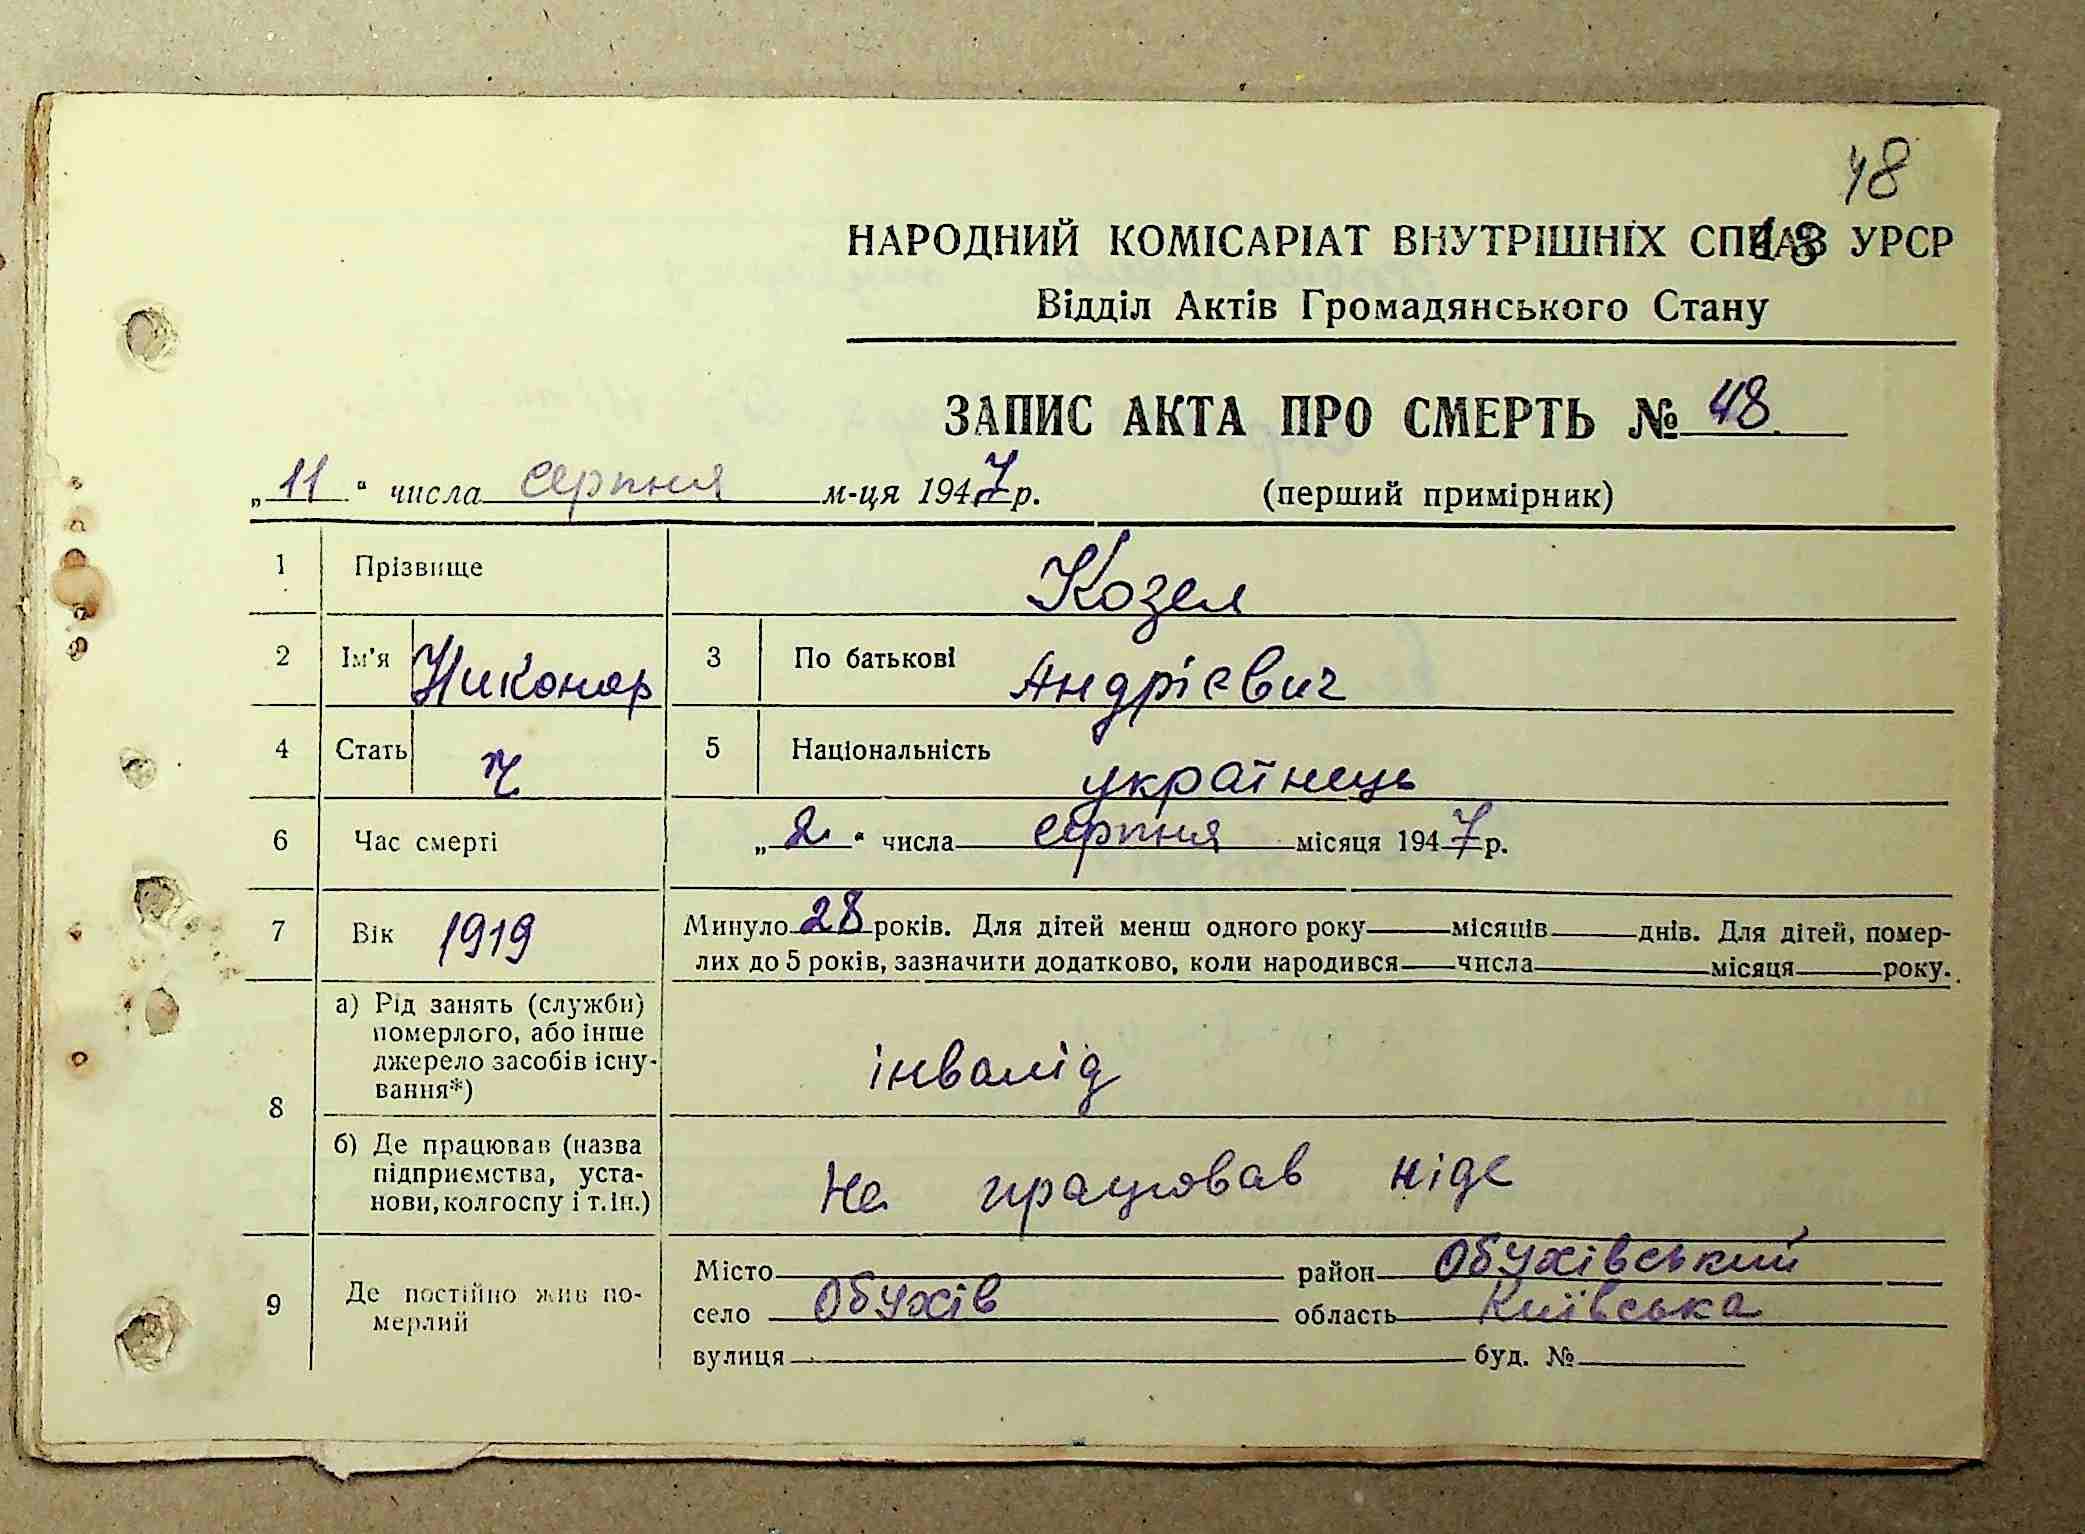 48
НАРОДНИЙ КОМІСАРІАТ ВНУТРІШНІХ СПРАВ УРСР
48
Відділ Актів Громадянського Стану
ЗАПИС АКТА ПРО СМЕРТЬ № 48
„11“ числа серпня м-ця 1947 р. (перший примірник)
1 Прізвище Козел
2 Ім'я Никонор 3 По батькові Андрієвич
4 Стать ч 5 Національність українець
6 Час смерті „2“ числа серпня місяця 1947 р.
7 Вік 1919 Минуло 28 років. Для дітей менш одного року місяців днів. Для дітей, помер-
лих до 5 років, зазначити додатково, коли народився числа місяця року.
8 а) Рід занять (служби)
померлого, або інше
джерело засобів існу-
вання*)
інвалід
б) Де працював (назва
підприємства, уста-
нови, колгоспу і т. ін.)
Не працював ніде
9 Де постійно жив по-
мерлий
Місто район Обухівський
село Обухів область Київська
вулиця буд. №